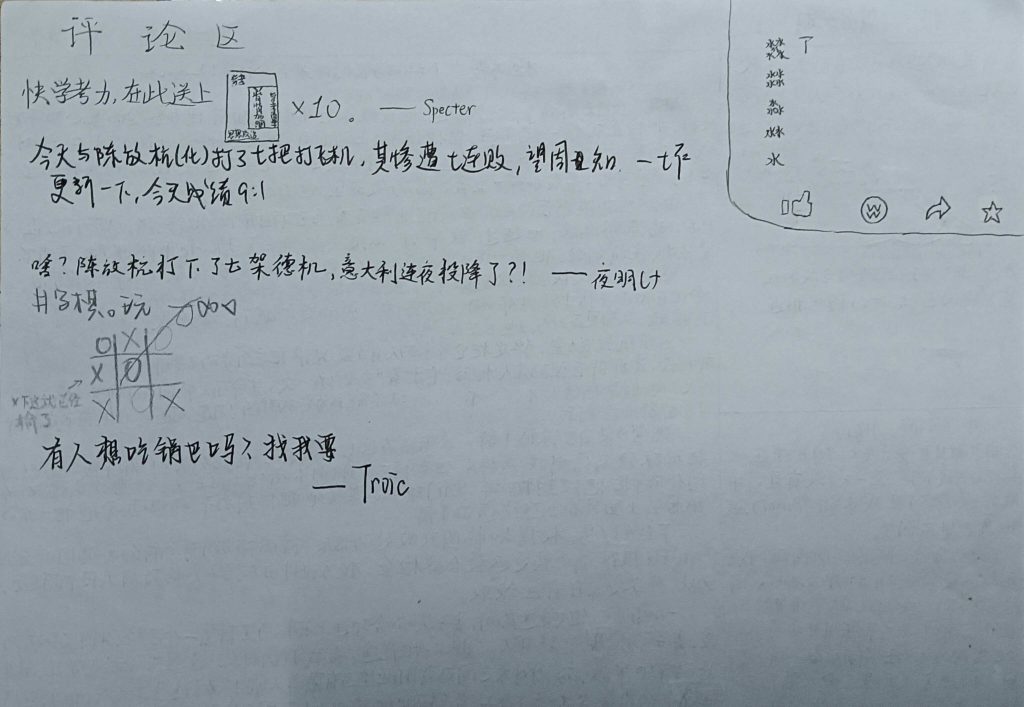 评论区
快学考力,在此送上 ×10。 — Specter
今天与陈放杭(化)打了七把打飞机,其惨遭七连败,望周知.
更新一下,今天成绩9:1
啥?陈放杭打下了七架德机,意大利连夜投降了?! — 夜明
井字棋。玩
O X O
X O
X O X
×下这就已经
输了
有人想吃锅巴吗?找我要
— Troic
了
水